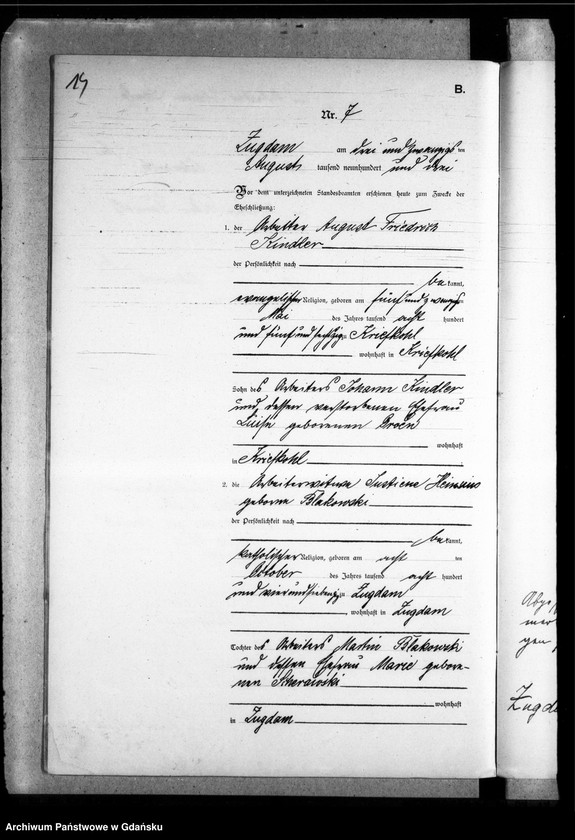 14
B.
Nr. 7
Zugdam am drei und zwanzigs ten
August tausend neunhundert und drei
Vor dem unterzeichneten Standesbeamten erschienen heute zum Zwecke der
Eheschließung:
1. der Arbeiter August Friedrich
Kindler
der Persönlichkeit nach
be kannt,
evangelischer Religion, geboren am fünf und zwanzigs
Mai des Jahres tausend acht hundert
und fünf und zu Kriefkohl
wohnhaft in Kriefkohl
Sohn des Arbeiters Johann Kindler
und dessen verstorbenen Ehefrau
Luise geborenen
wohnhaft
in Kriefkohl
2. die Arbeiterwitwe Justiena
geborne Blakowski
der Persönlichkeit nach
be kannt,
katholischer Religion, geboren am acht ten
October des Jahres tausend acht hundert
und vierundsiebenzig zu Zugdam
wohnhaft in Zugdam
Tochter des Arbeiters Martin Blakowski
und dessen Ehefrau Marie gebore-
nen
wohnhaft
in Zugdam
gen
Archiwum Państwowe w Gdańsku